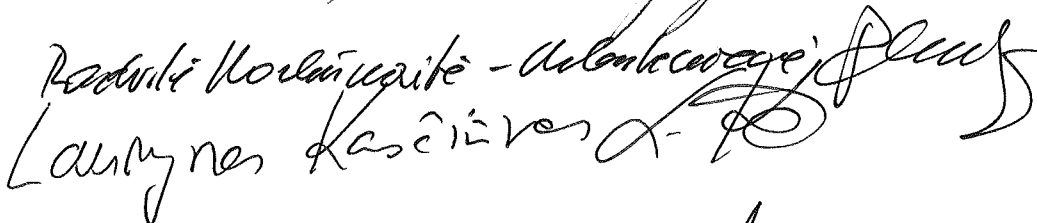 Radvilė Morkūnaitė-Mikulėnienė
Laurynas Kasčiūnas